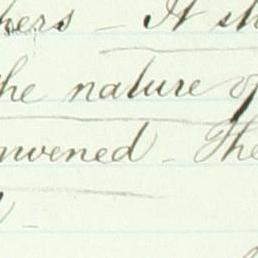 hers - It sh
the nature of
nvened - The